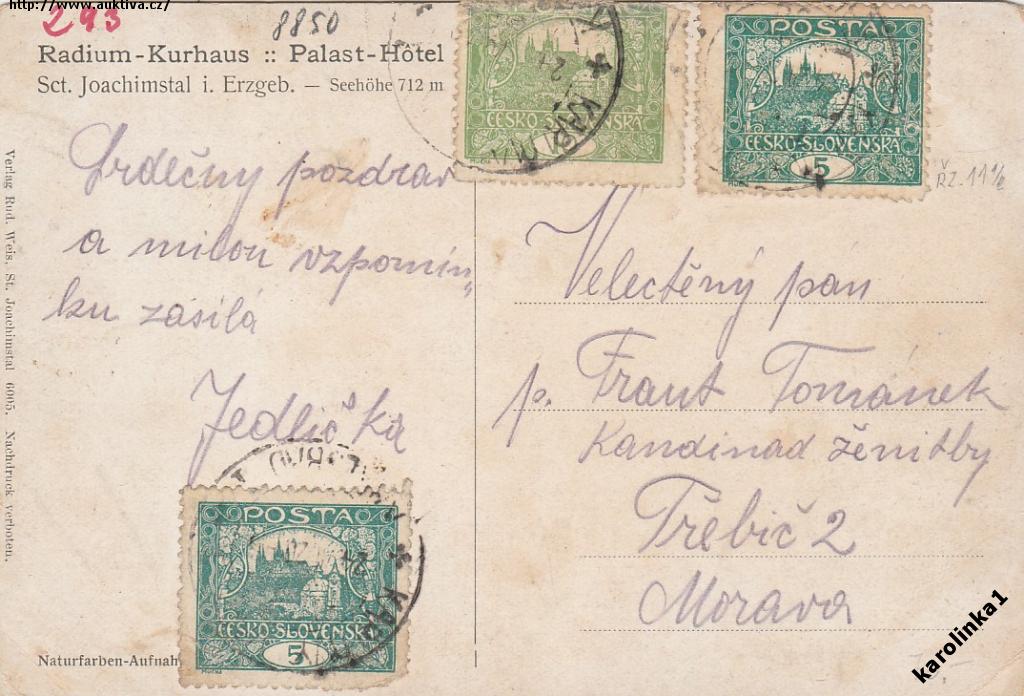 http://www.auktiva.cz/
293
8850
Radium-Kurhaus :: Palast-Hôtel
Sct. Joachimstal i. Erzgeb. — Seehöhe 712 m
Srdečný pozdrav
a milou vzpomín„
ku zasílá
Jedlička
POSTA
ČESKO-SLOVENSKÁ
5
ČESKO-SLOVENSKÁ
ŘZ. 11½
Velectěný pán
p. Frant Tománek
Kandinad ženitby
Třebíč 2
Morava
POSTA
ČESKO-SLOVENSKÁ
5
Verlag Rud. Weis, St. Joachimstal 6005. Nachdruck verboten.
Naturfarben-Aufnah
karolinka1